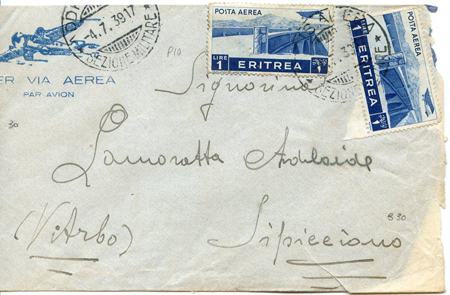 4.7.39 17
SEZIONE MILITARE
POSTA AEREA
LIRE 1
ERITREA
POSTA AEREA
LIRE 1
ERITREA
PER VIA AEREA
PAR AVION
P10
Signorina
30
Lamoratta Adelaide
B30
(Viterbo) Sipicciano